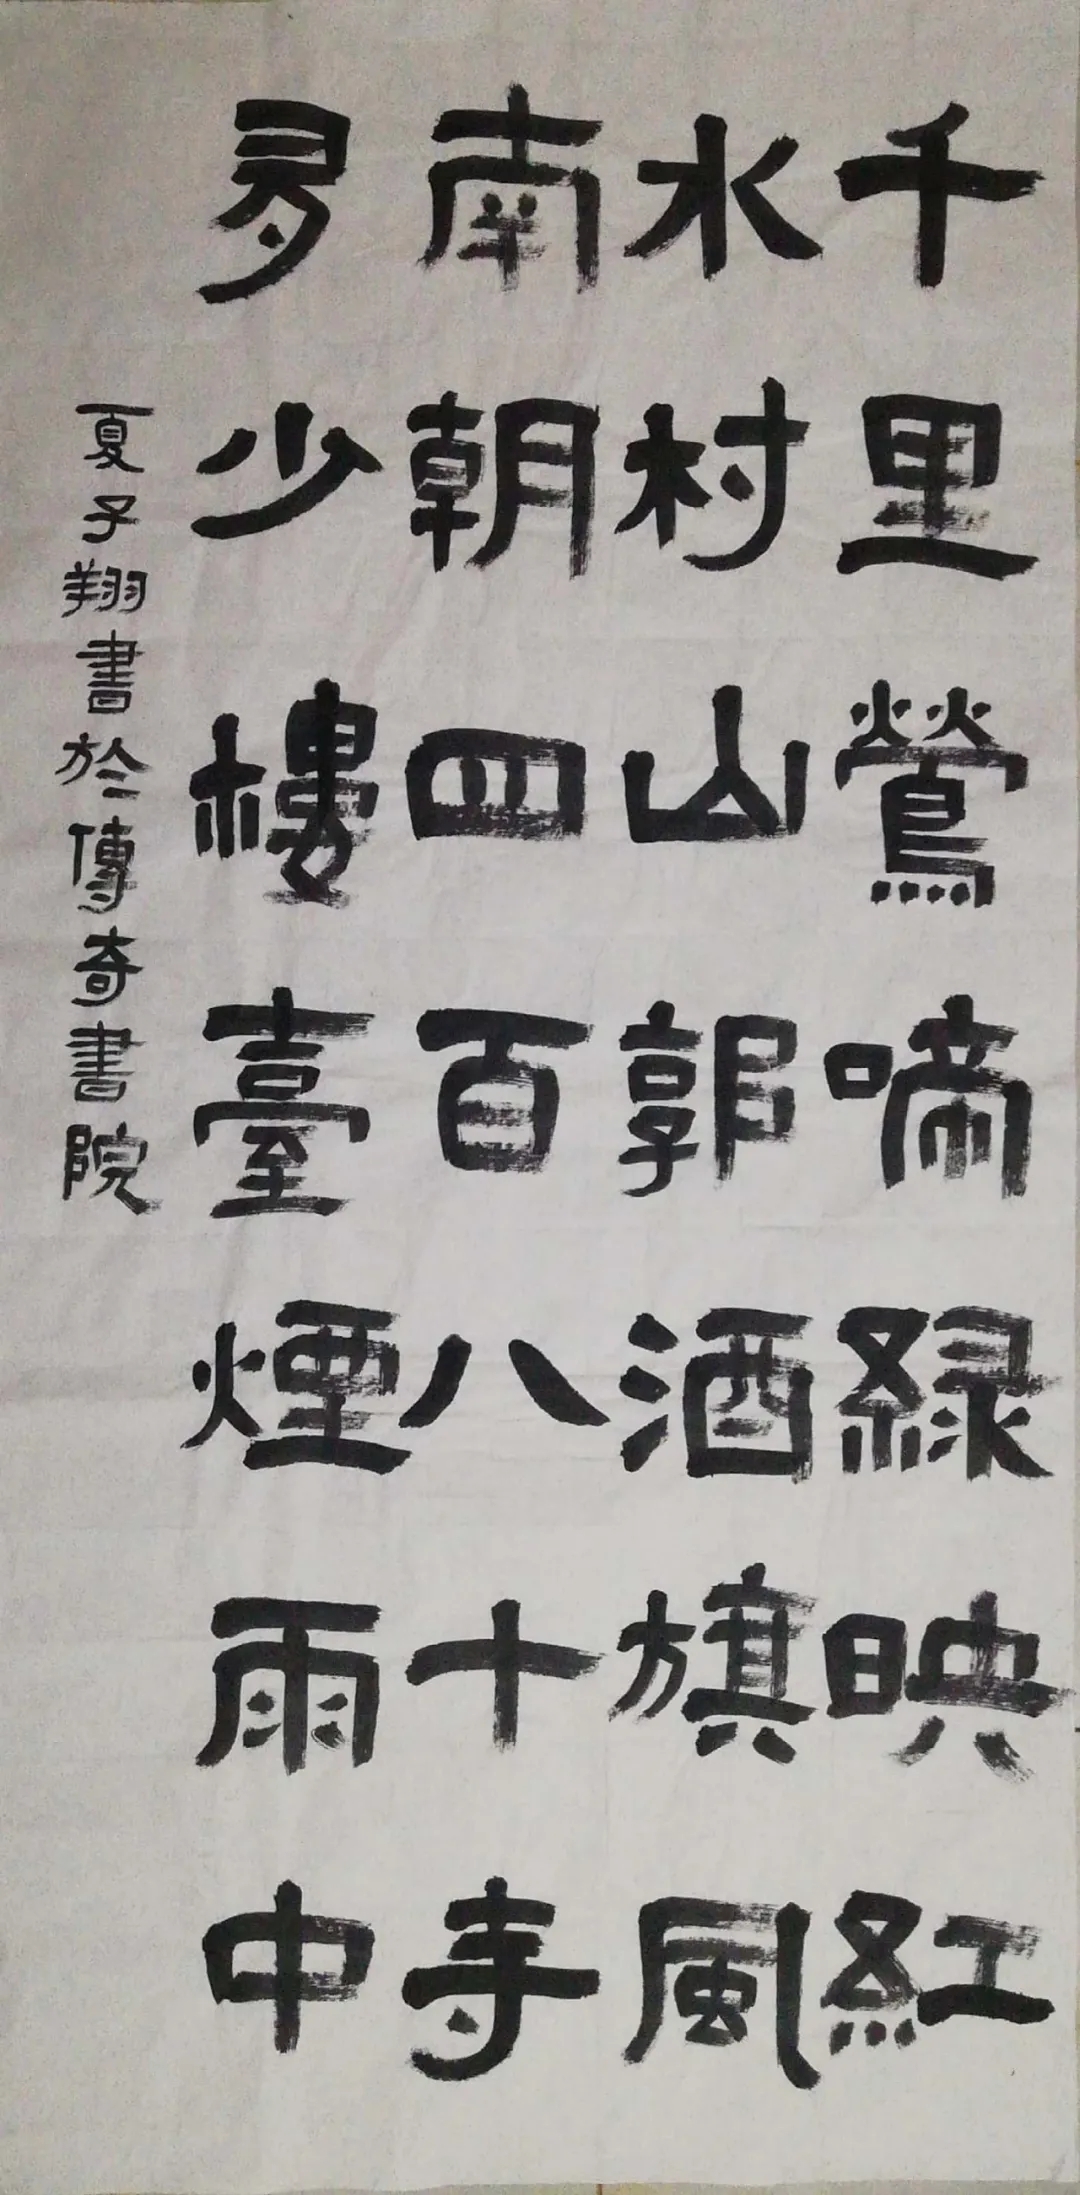 千里鶯啼緑映紅
水村山郭酒旗風
南朝四百八十寺
多少樓臺煙雨中
夏子翔書於傳奇書院